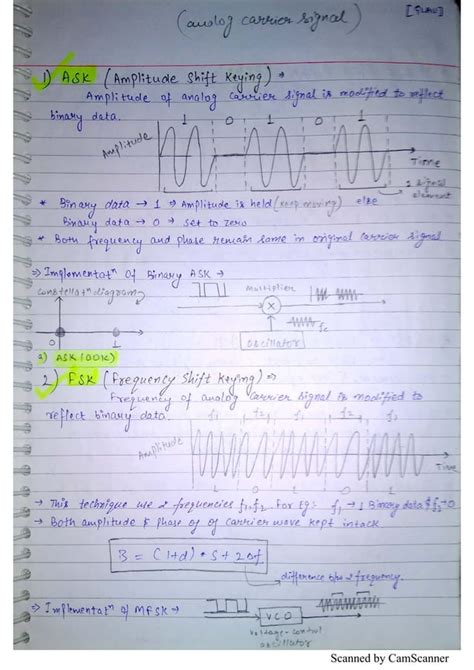 (analog carrier signal)
1) ASK (Amplitude Shift Keying) →
Amplitude of analog carrier signal is modified to reflect
binary data.
1 0 1 0 1
Amplitude
Time
1 signal
element
* Binary data → 1 → Amplitude is held (keep moving) else
Binary data → 0 → set to zero
* Both frequency and phase remain same in original carrier signal
⇒ Implementatⁿ of Binary ASK →
constellatⁿ diagram
Multiplier
X
fc
0 1
oscillator
a) ASK (OOK)
2) FSK (Frequency Shift Keying) ⇒
Frequency of analog carrier signal is modified to
reflect binary data.
f1 f2 f1 f2 f1
Amplitude
Time
1 0 1 0 1
→ This technique use 2 frequencies f1, f2. For eg: f1 → 1 Binary data & f2 → 0
→ Both amplitude & phase of of carrier wave kept intack.
B = (1+d) * S + 2Δf
difference b/w 2 frequency.
⇒ Implementatⁿ of MFSK →
VCO
voltage-control
oscillator
Scanned by CamScanner